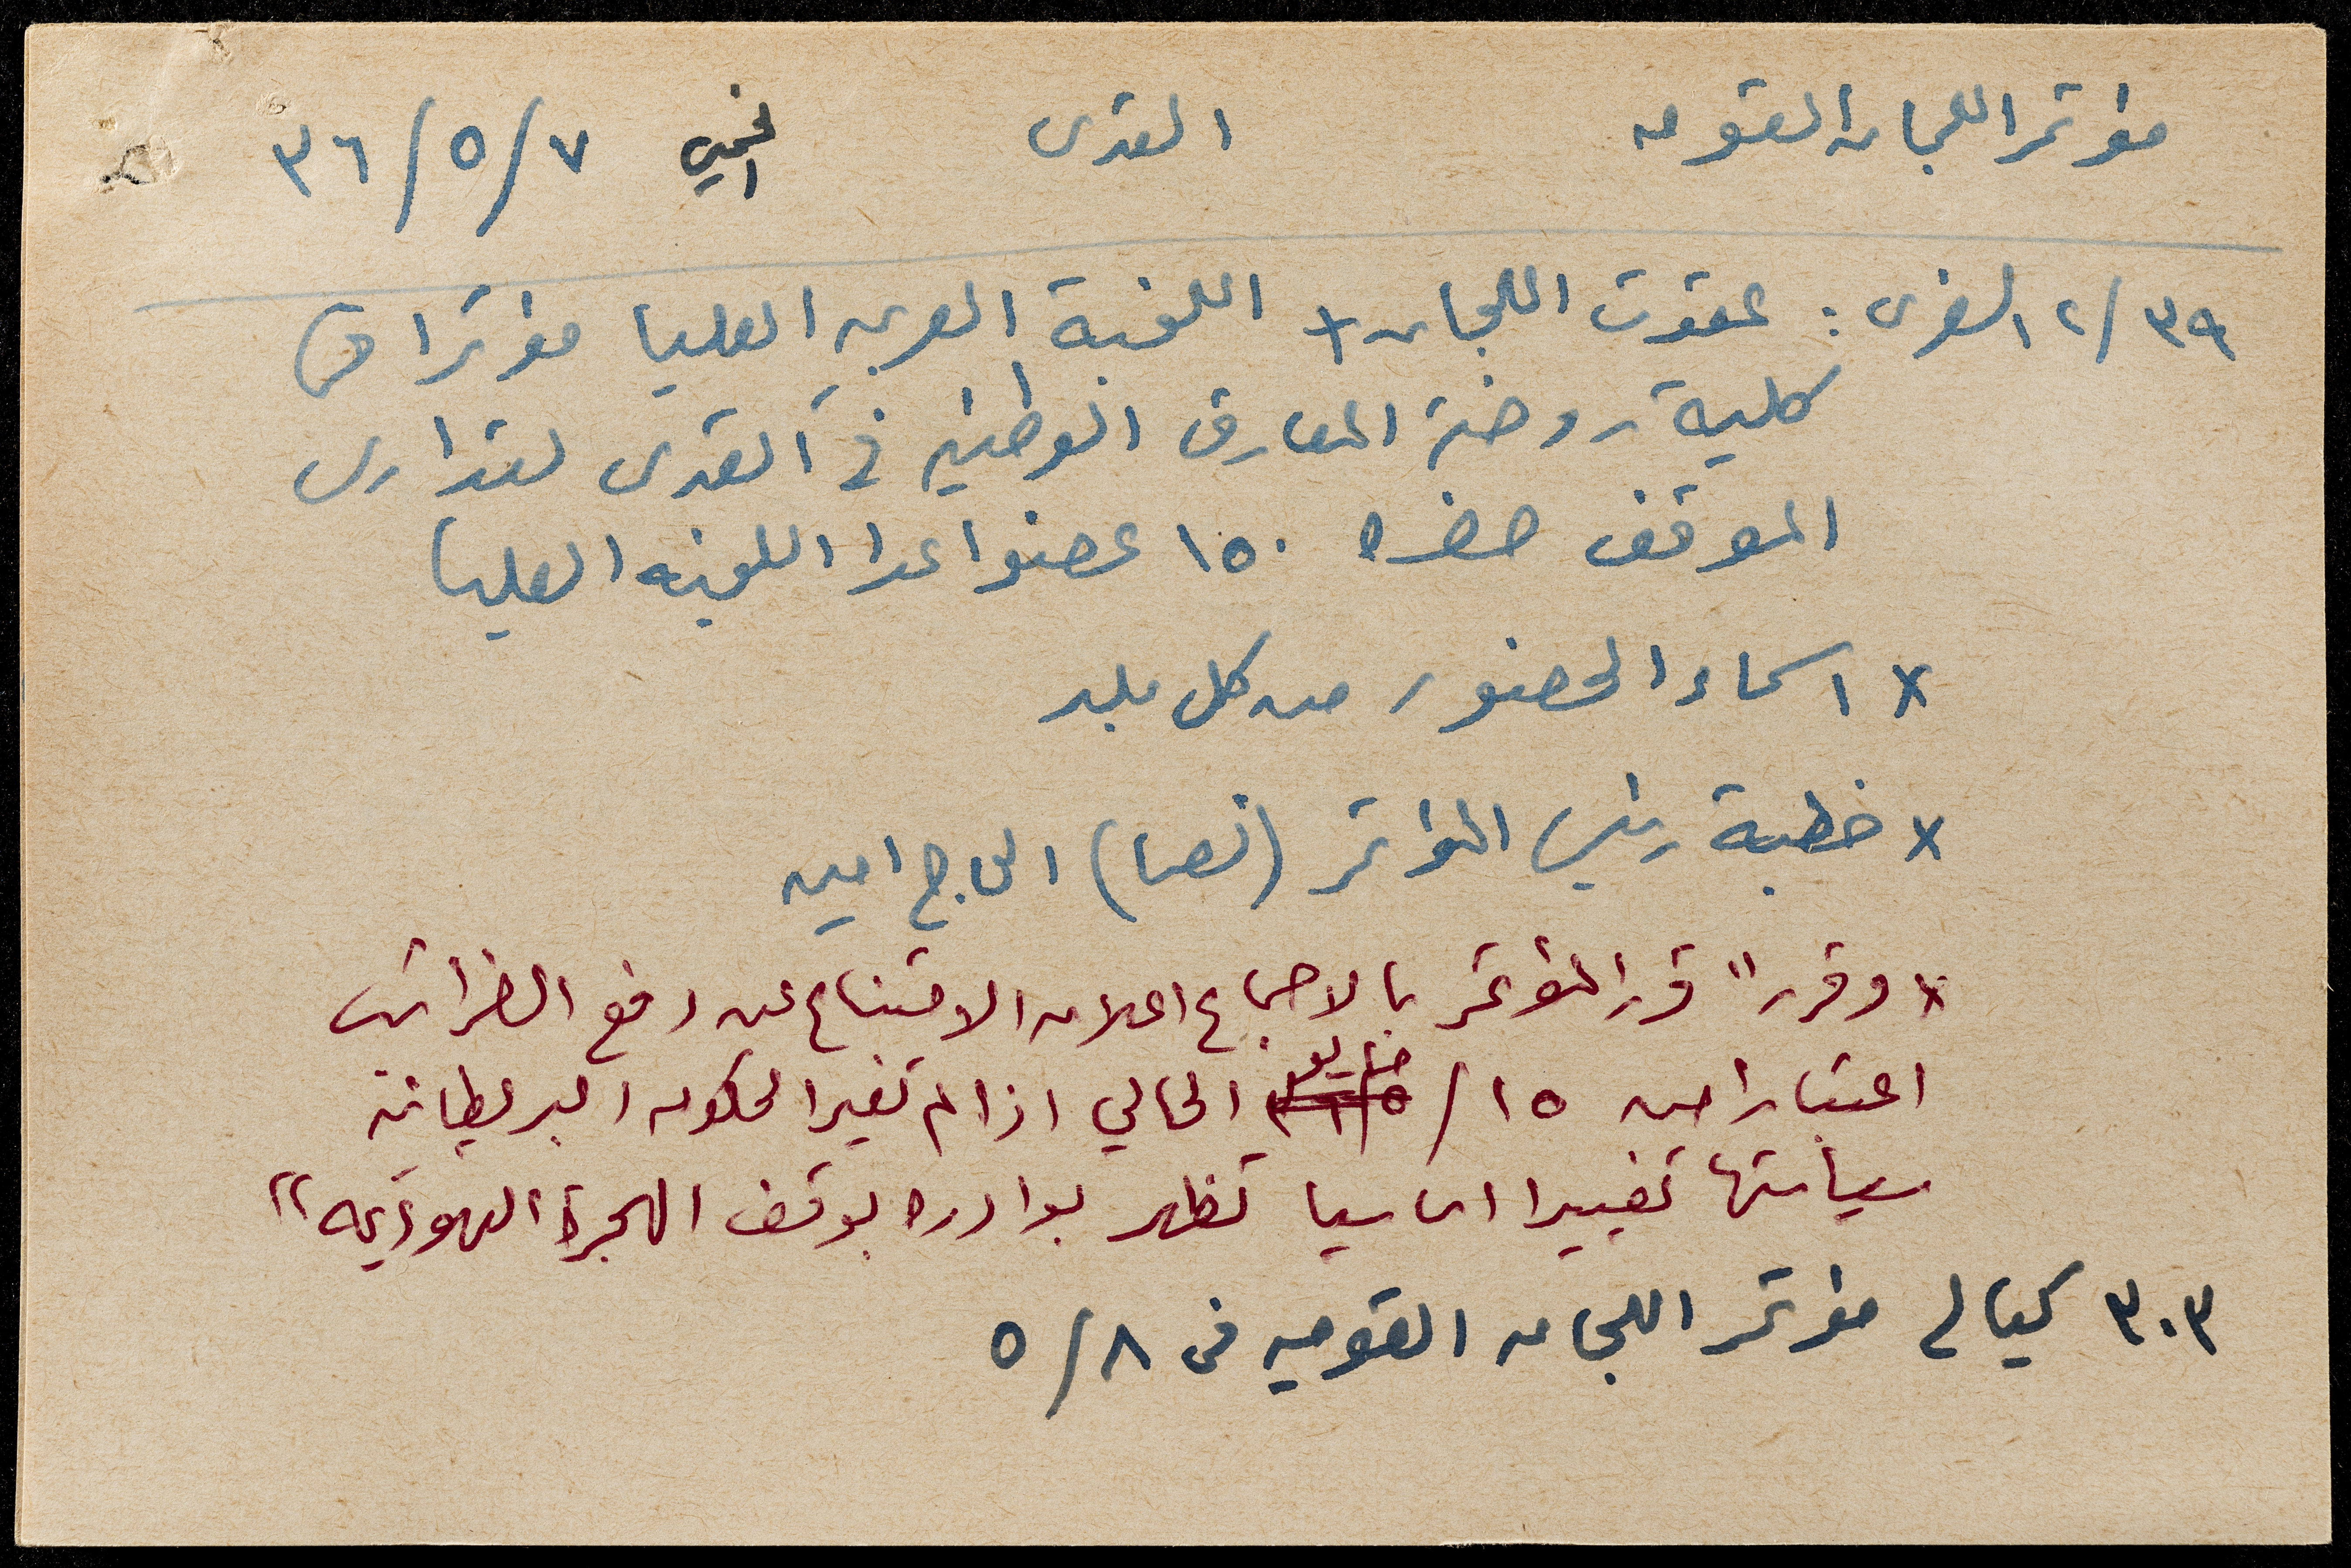 مؤتمر اللجان القوميه القدس الخميس ٣٦/٥/٧
٢/٣٩ السفرى : عقدت اللجان + اللجنة العربيه العليا مؤتمرا في
كلية روضة المعارف الوطنيه في القدس لتدارس
الموقف حضره ١٥٠ عضوا عدا اللجنه العليا
x اسماء الحضور من كل بلد
x خطبة رئيس المؤتمر (نصا) الحاج امين
x وقرر " قرر المؤتمر بالاجماع اعلان الامتناع عن دفع الضرائب
اعتبارا من ١٥/ مايو الحالي اذا لم تغير الحكومه البريطانية
سياستها تغييرا اساسيا تظهر بوادره بوقف الهجرة اليهوديه "
٣٠٣ كيالي مؤتمر اللجان القوميه في ٥/٨